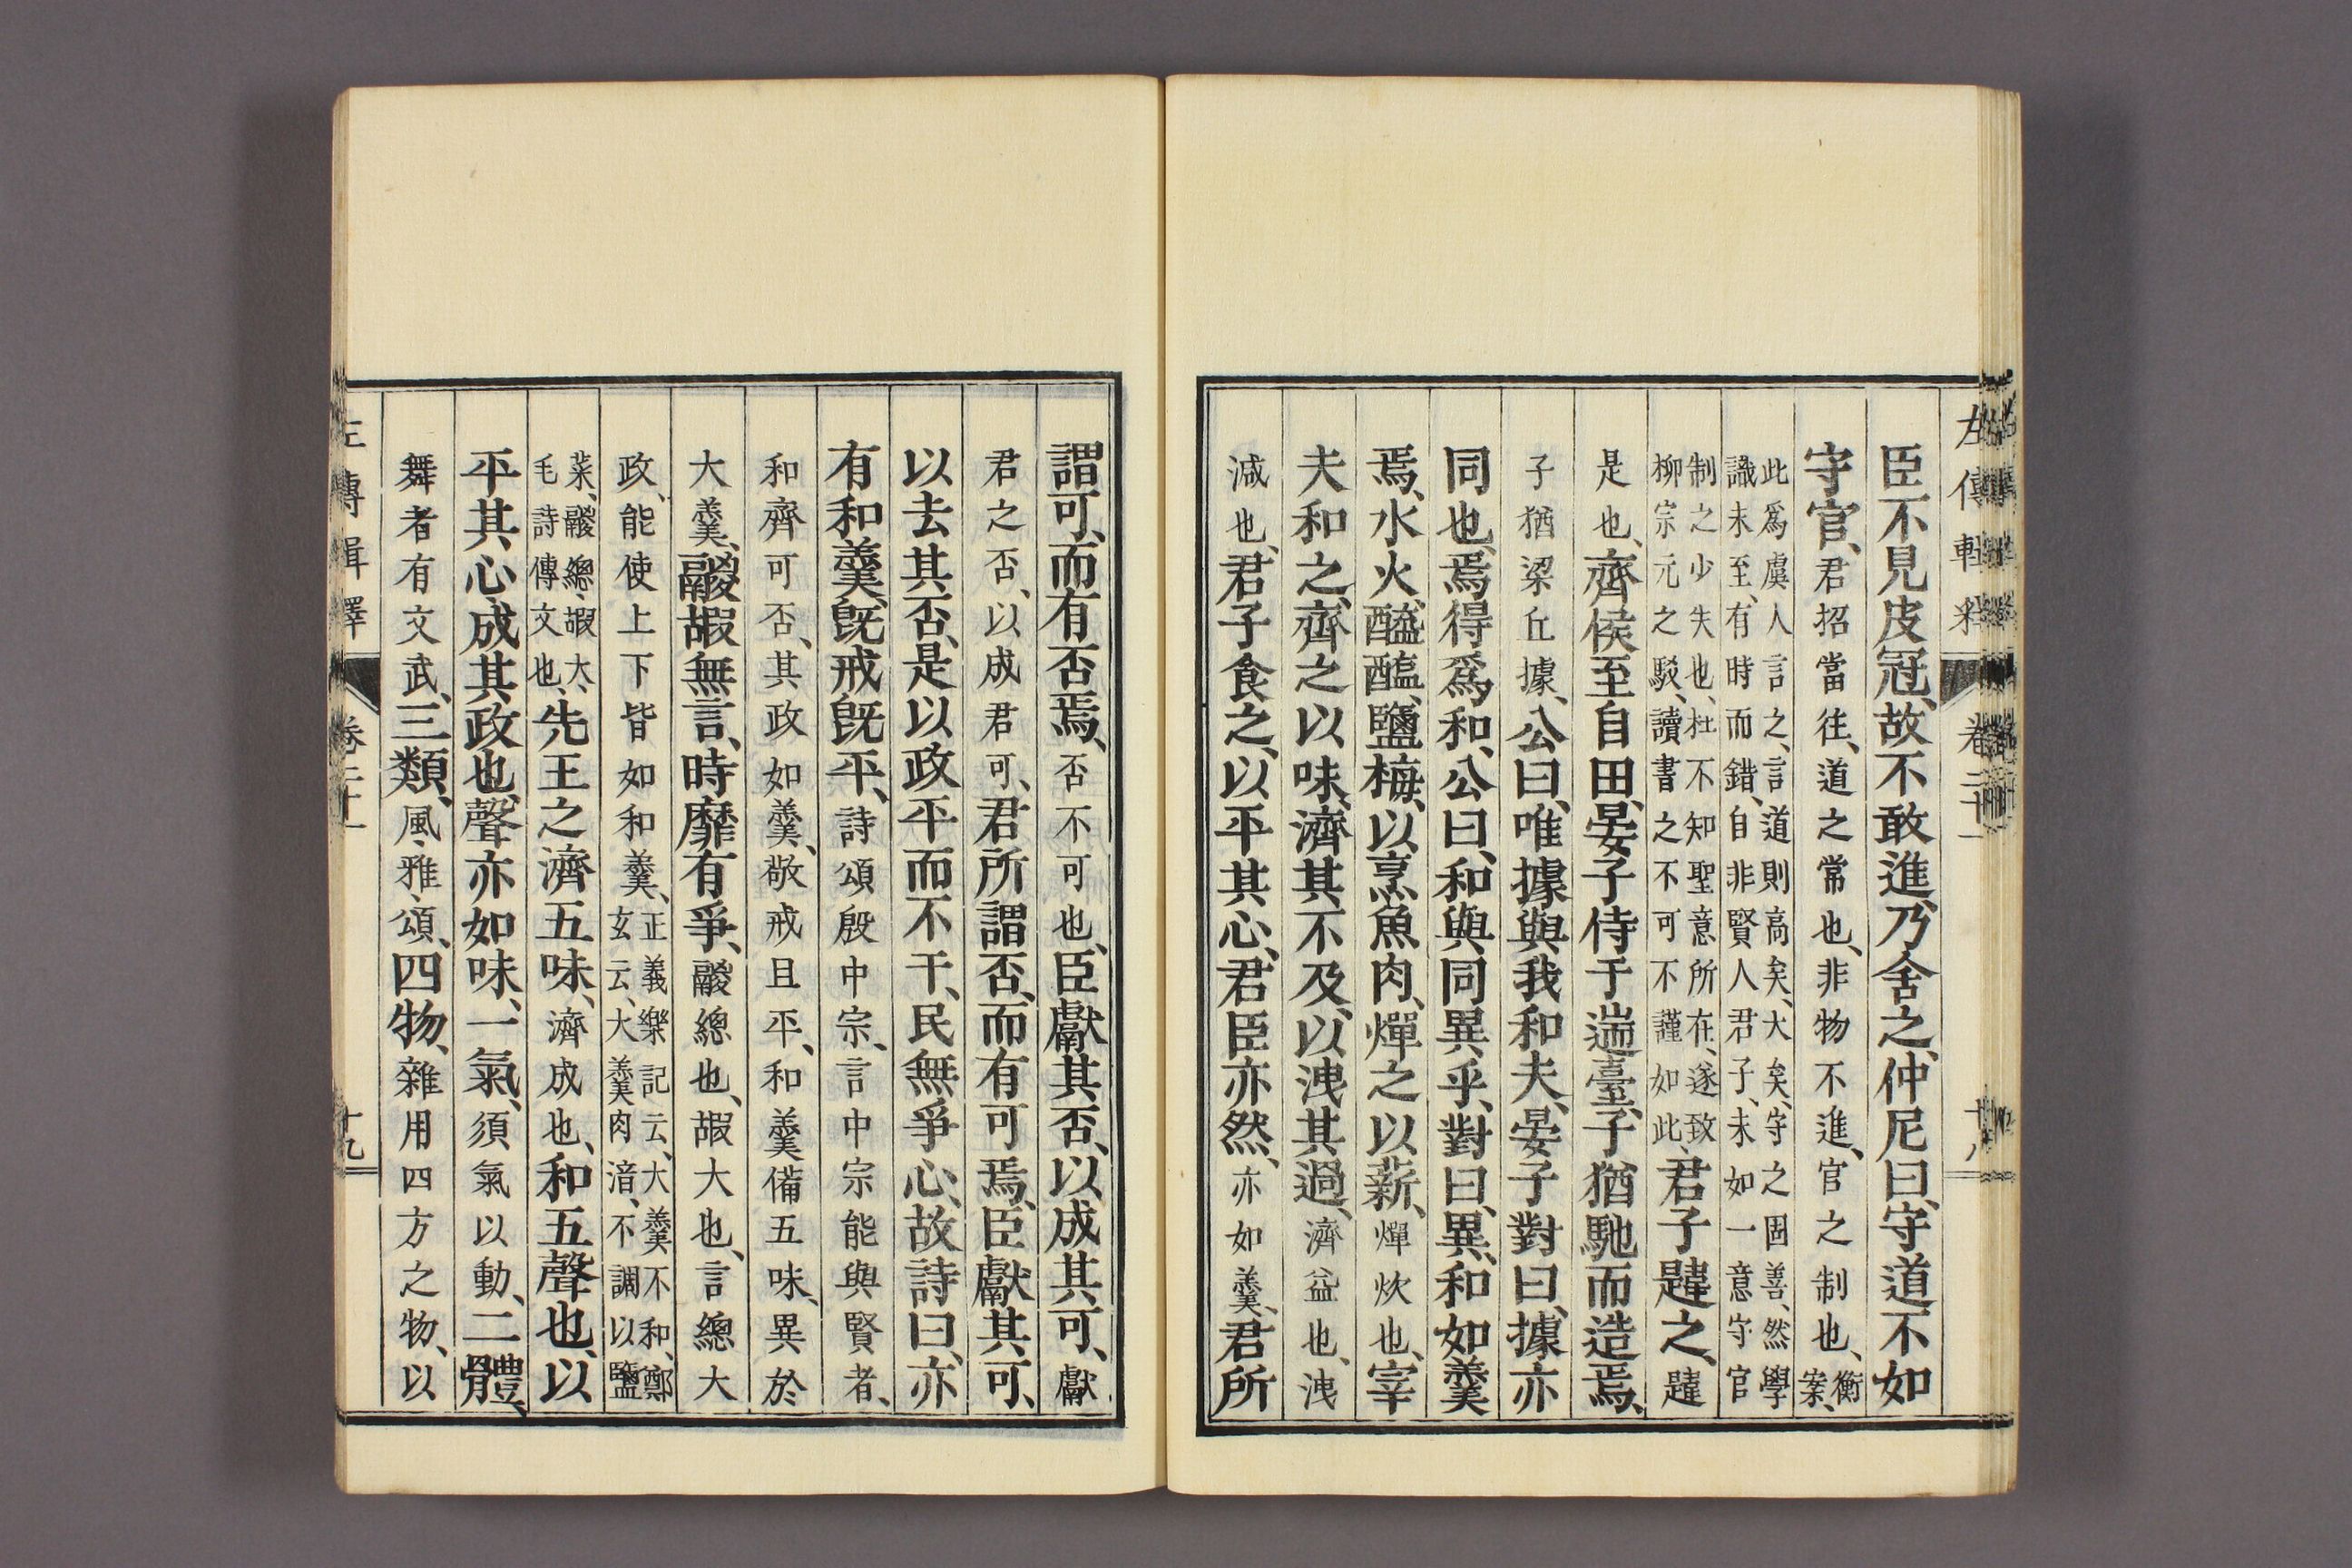 臣不見皮冠、故不敢進、乃舍之、仲尼曰、守道不如
守官、君招當往、道之常也、非物不進、官之制也、衡案、
此爲虞人言之、言道則高矣、大矣、守之固善、然學
識未至、有時而錯、自非賢人君子、未如一意守官
制之少失也、杜不知聖意所在、遂致
柳宗元之駁、讀書之不可不謹如此、君子韙之、韙
是也、齊侯至自田、晏子侍于遄臺、子猶馳而造焉、
子猶梁丘據、公曰、唯據與我和夫、晏子對曰、據亦
同也、焉得爲和、公曰、和與同異乎、對曰、異、和如羹
焉、水火醯醢鹽梅、以烹魚肉、燀之以薪、燀炊也、宰
夫和之、齊之以味、濟其不及、以洩其過、濟益也、洩
減也、君子食之、以平其心、君臣亦然、亦如羹、君所
左傳輯釋 卷二十一 十八
謂可、而有否焉、否不可也、臣獻其否、以成其可、獻
君之否、以成君可、君所謂否、而有可焉、臣獻其可、
以去其否、是以政平而不干、民無爭心、故詩曰、亦
有和羹、既戒既平、詩頌殷中宗、言中宗能與賢者、
和齊可否、其政如羹、敬戒且平、和羹備五味、異於
大羹、鬷嘏無言、時靡有爭、鬷總也、嘏大也、言總大
政、能使上下皆如和羹、正義樂記云、大羹不和、鄭
玄云、大羹肉湆、不調以鹽
菜、鬷總、嘏大、
毛詩傳文也、先王之濟五味、濟成也、和五聲也、以
平其心、成其政也、聲亦如味、一氣、須氣以動、二體、
舞者有文武、三類、風、雅、頌、四物、雜用四方之物、以
左傳輯釋 卷二十一 十九